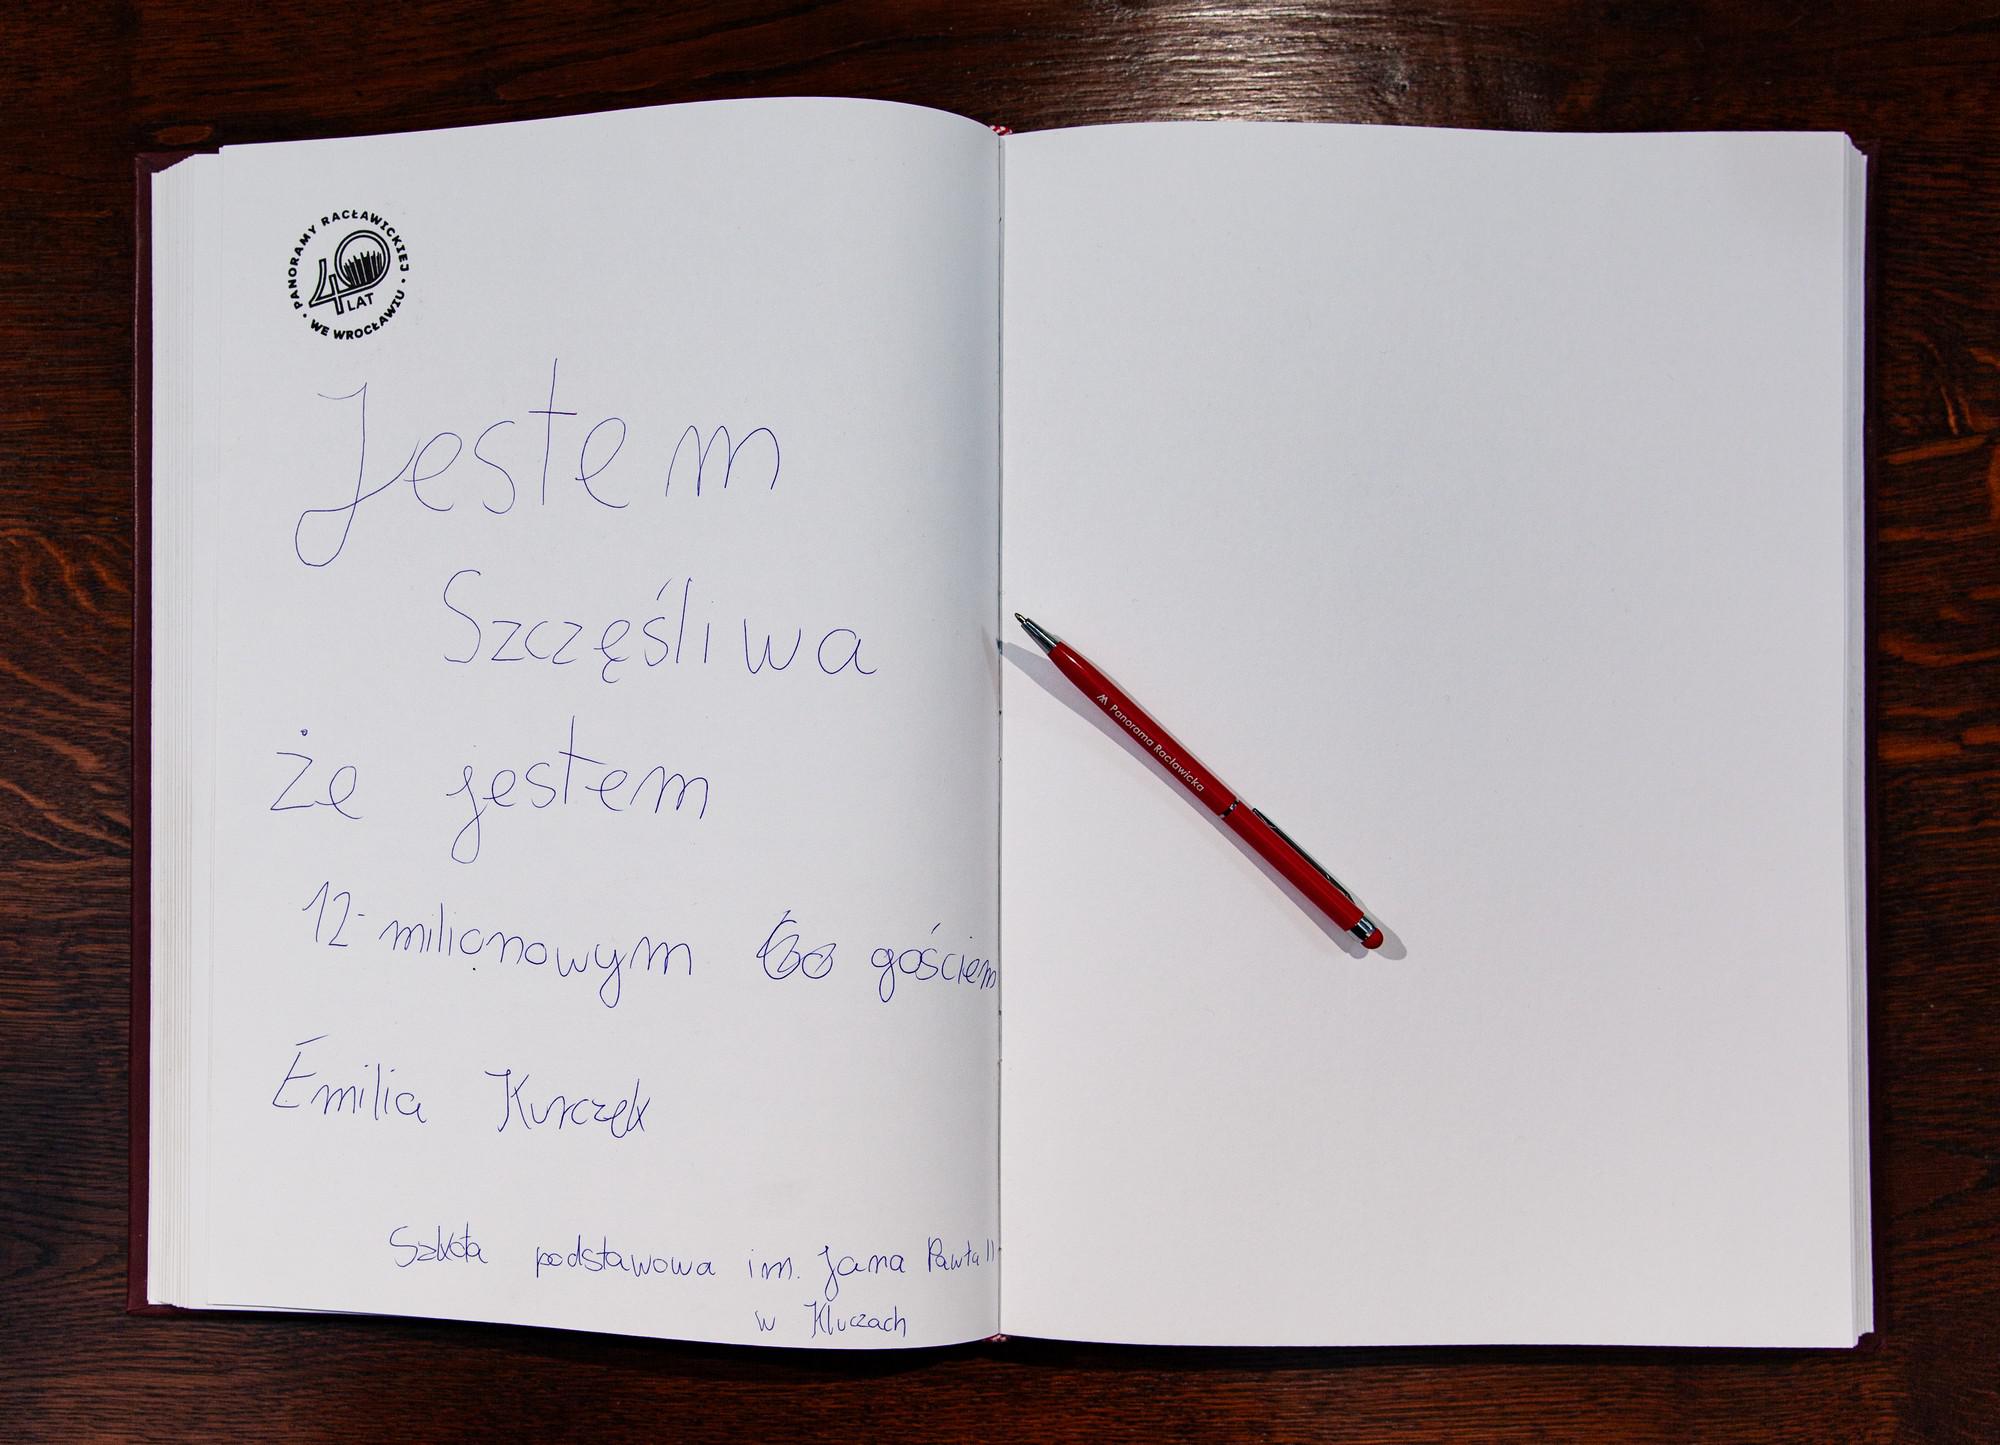 PANORAMY RACŁAWICKIEJ
40
LAT
WE WROCŁAWIU
Jestem
Szczęśliwa
że jestem
12-milionowym gościem
Emilia Kurczek
Szkoła podstawowa im. Jana Pawła II
w Kluczach
Panorama Racławicka